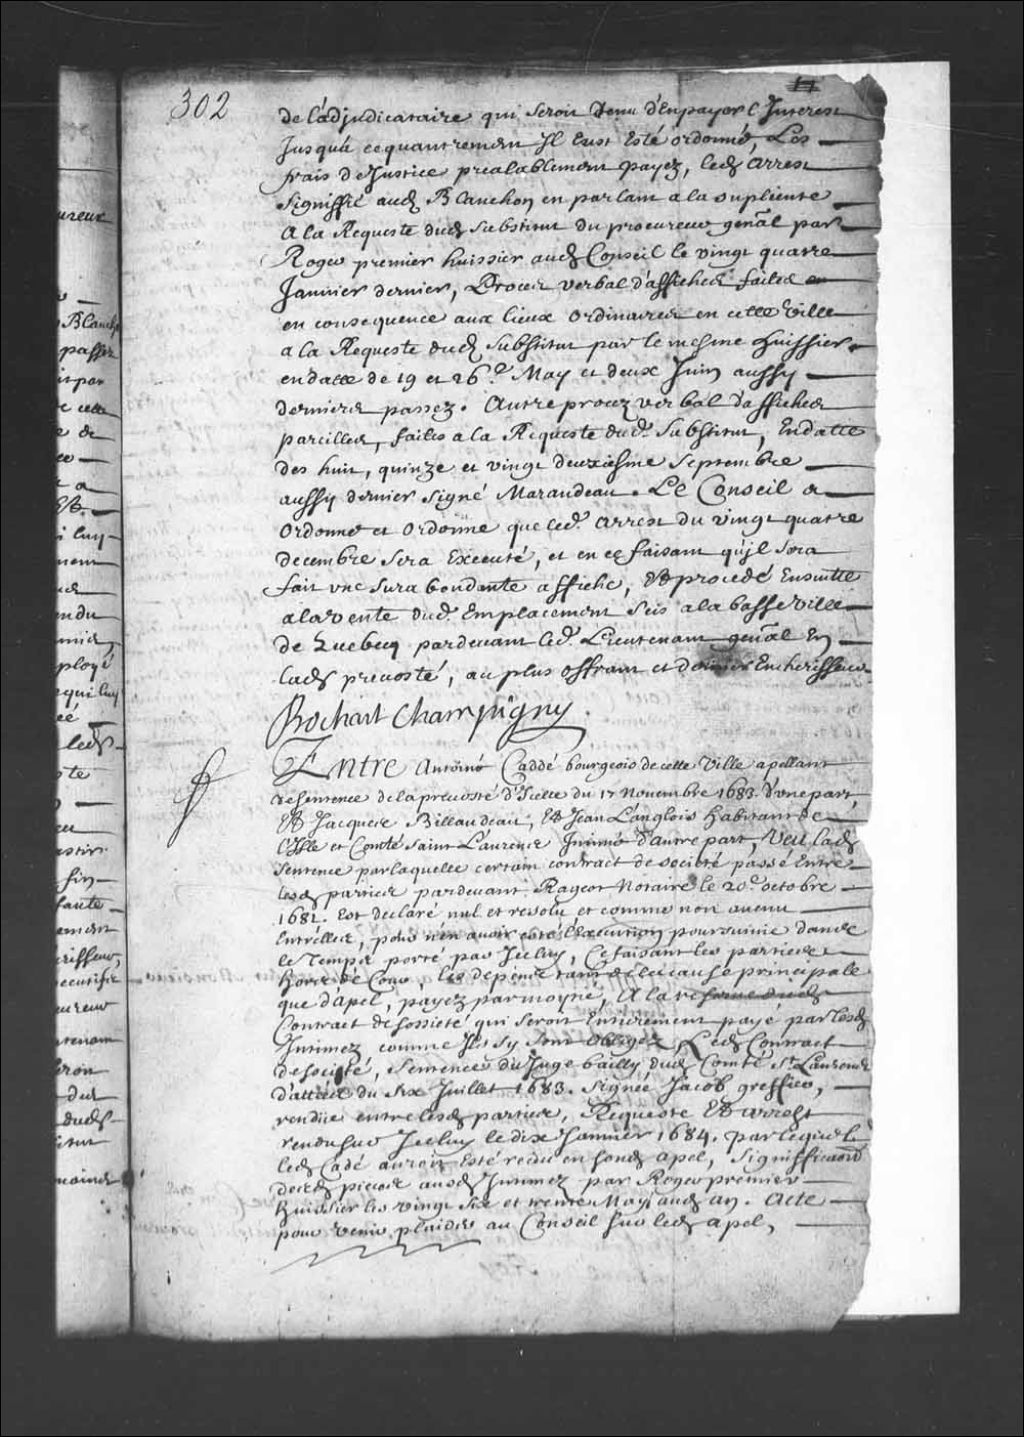 302
de l'adjudicataire qui seroit tenu d'En payer l'Interest
Jusqu'a ce qu'autrement Il Eust Esté ordonné, Les
frais de Justice prealablement payez, led. Arrest
signiffié aud. Blanchon en parlant a la supliente
A la Requeste dud. substitut du procureur genal par
Roger premier huissier aud. Conseil le vingt quatre
Janvier dernier, Procez verbal d'affiches faites en
en consequence aux lieux ordinaires en cette Ville
a la Requeste dud. Substitut par le mesme huissier
en datte de 19 et 26e. May et deux Juin aussy
derniers passez. Autre procez verbal d'affiches
pareilles, faites a la Requeste dud. Substitut, En datte
des huit, quinze et vingt deuxiesme Septembre
aussy dernier signé Marandeau. Le Conseil a
ordonné et ordonne que led. arrest du vingt quatre
decembre sera Executé, et en ce faisant qu'jl sera
fait vne surabondante affiche, Et procedé Ensuitte
a la vente dud. Emplacement scis a la basse ville
de Quebecq pardevant led. Lieutenant genal En
lad. prevosté, au plus offrant et dernier Encherisseur
Bochart Champigny.
Entre Antoine Caddé bourgeois de cette Ville apellant
de sentence de la prevosté d'Icelle du 17 Novembre 1683. d'vne part,
Et Jacques Billaudeau, Et Jean L'anglois habitant de
l'Isle et Comté Saint Laurence Intimé d'autre part, Veu lad.
Sentence par laquelle certain contract de societé passé Entre
lesd. parties pardevant Rageot Notaire le 20e. octobre
1682. Est declaré nul et resolu et comme non avenu
Entr'elles, pour n'en avoir esté l'Execution poursuivie dans
le Temps porté par Jcelluy, Ce faisant les parties
hors de Cour, les depens tant de la cause principale
que d'apel, payez par moytié, A la reserve dud.
Contract de sossieté qui seroit Entierement payé par lesd.
Intimez comme Ils s'y sont obligez Led. Contract
de societé, Sentence du Juge bailly dud. Comté St. Laurence
d'attée du six Juillet 1683. signée Jacob greffier,
rendüe entre lesd. parties, Requeste Et arrest
rendu sur Jcelluy le dix Janvier 1684. par lequel
led. Cadé auroit Esté receu en sond. apel, Signiffication
desd. pieces ausd. Intimez par Roger premier
huissier les vingt six et trente May aud. an. Acte
pour venir plaider au Conseil sur led. apel,